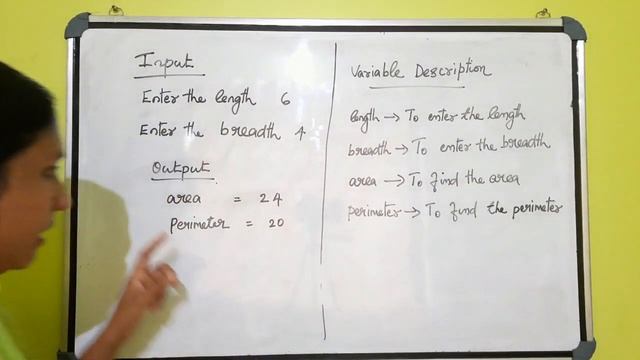 Input
Enter the length 6
Enter the breadth 4
Output
area = 24
Perimeter = 20
Variable Description
length → To enter the length
breadth → To enter the breadth
area → To find the area
perimeter → To find the perimeter